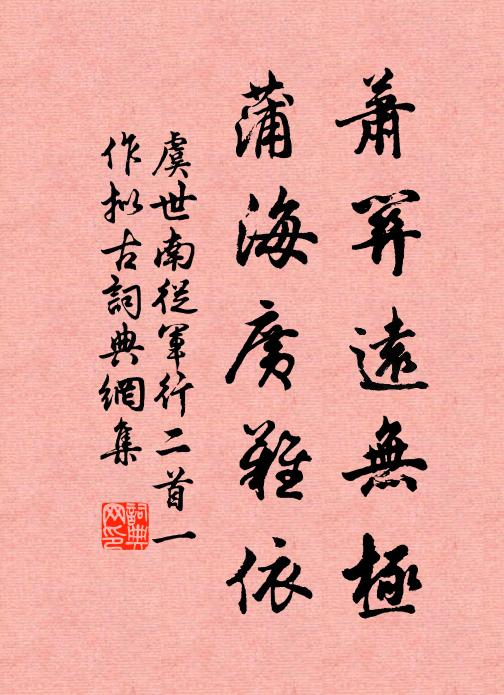 蕭關遠無極
蒲海廣難依
虞世南從軍行二首一
作擬古詞典網集
詞典网印